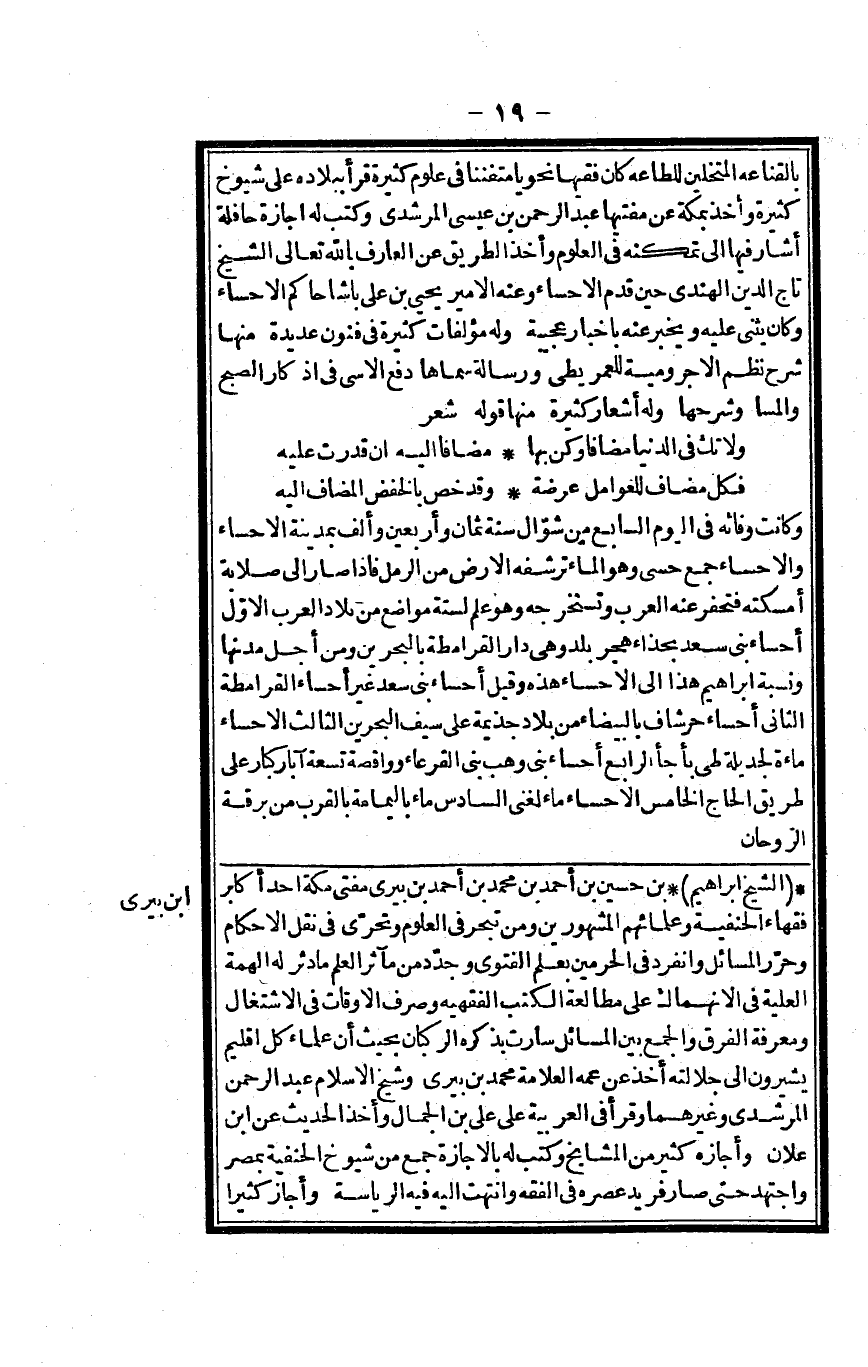 - ١٩ -
بالقناعه المتحلين للطاعه كان فقيها نحويا متفننا فى علوم كثيرة قرأ ببلاده على شيوخ
كثيرة وأخذ بمكة عن مفتيها عبد الرحمن بن عيسى المرشدى وكتب له اجازة حافلة
أشار فيها الى تمكنه فى العلوم وأخذ الطريق عن العارف بالله تعالى الشيخ
تاج الدين الهندى حين قدم الاحساء وعنه الامير يحيى بن على باشا حاكم الاحساء
وكان يثنى عليه ويخبر عنه باخبار عجيبة وله مؤلفات كثيرة فى فنون عديدة منها
شرح نظم الاجرومية للعمريطى ورسالة سماها دفع الاسى فى اذكار الصبح
والمسا وشرحها وله أشعار كثيرة منها قوله شعر
ولا تك فى الدنيا مضافا وكن بها * مضافا اليه ان قدرت عليه
فكل مضاف للعوامل عرضة * وقد خص بالخفض المضاف اليه
وكانت وفاته فى اليوم السابع من شوّال سنة ثمان وأربعين وألف بمدينة الاحساء
والاحساء جمع حسى وهو الماء ترشفه الارض من الرمل فاذا صار الى صلابة
أمسكته فتحفر عنه العرب وتستخرجه وهو علم لستة مواضع من بلاد العرب الاوّل
أحساء بنى سعد بحذاء هجر بلد وهى دار القرامطة بالبحرين ومن أجل مدنها
ونسبة ابراهيم هذا الى الاحساء هذه وقيل أحساء بنى سعد غير أحساء القرامطة
الثانى أحساء خرشاف بالبيضاء من بلاد جذيمة على سيف البحرين الثالث الاحساء
ماءة لجديلة طى بأجأ الرابع أحساء بنى وهب بنى القرعاء وواقصة تسعة آبار كبار على
طريق الحاج الخامس الاحساء ماء لغنى السادس ماء باليمامة بالقرب من برقة
الرّوحان
*(الشيخ ابراهيم)* بن حسين بن أحمد بن محمد بن أحمد بن بيرى مفتى مكة احد أكابر
ابن بيرى
فقهاء الحنفية وعلمائهم المشهورين ومن تبحر فى العلوم وتحرّى فى نقل الاحكام
وحرّر المسائل وانفرد فى الحرمين بعلم الفتوى وجدّد من مآثر العلم مادثر له الهمة
العلية فى الانهماك على مطالعة الكتب الفقهيه وصرف الاوقات فى الاشتغال
ومعرفة الفرق والجمع بين المسائل سارت بذكره الركبان بحيث أن علماء كل اقليم
يشيرون الى جلالته أخذ عن عمه العلامة محمد بن بيرى وشيخ الاسلام عبد الرحمن
المرشدى وغيرهما وقرأ فى العربية على على بن الجمال وأخذ الحديث عن ابن
علان وأجازه كثير من المشايخ وكتب له بالاجازة جمع من شيوخ الحنفية بمصر
واجتهد حتى صار فريد عصره فى الفقه وانتهت اليه فيه الرياسة وأجاز كثيرا